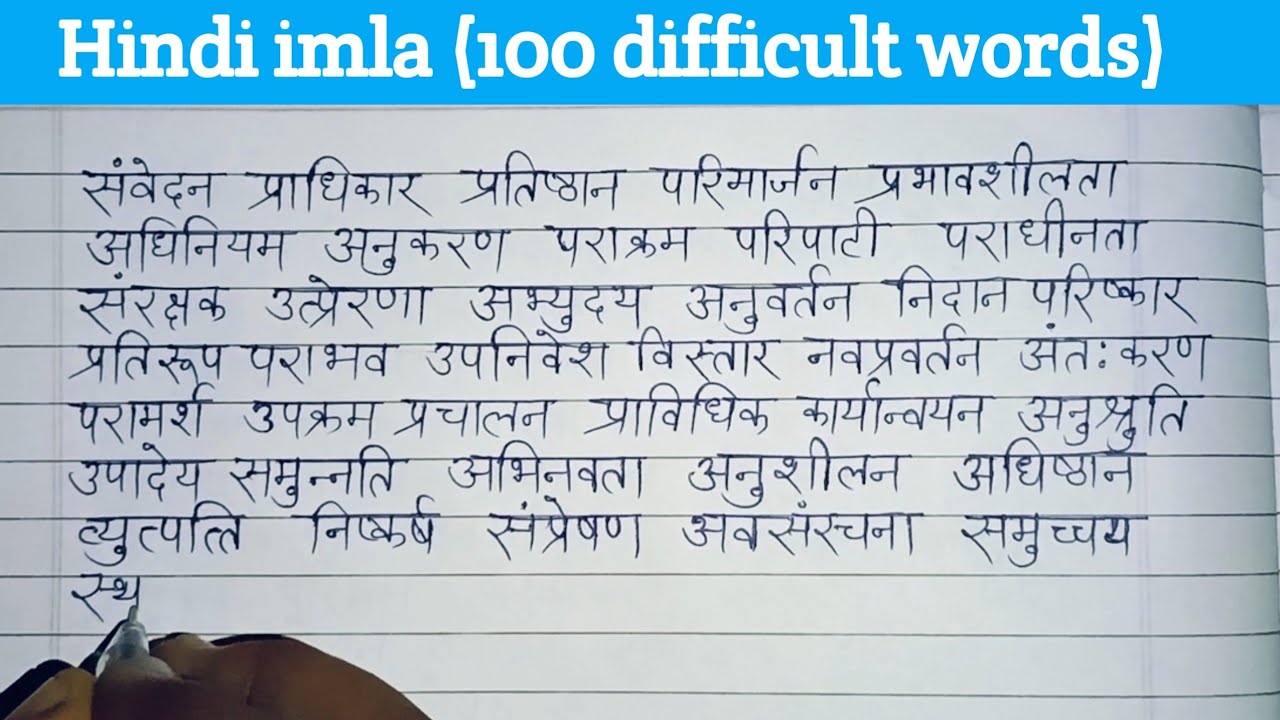 Hindi imla (100 difficult words)
संवेदन प्राधिकार प्रतिष्ठान परिमार्जन प्रभावशीलता
अधिनियम अनुकरण पराक्रम परिपाटी पराधीनता
संरक्षक उत्प्रेरणा अभ्युदय अनुवर्तन निदान परिष्कार
प्रतिरूप पराभव उपनिवेश विस्तार नवप्रवर्तन अंतःकरण
परामर्श उपक्रम प्रचालन प्राविधिक कार्यान्वयन अनुश्रुति
उपादेय समुन्नति अभिनवता अनुशीलन अधिष्ठान
व्युत्पत्ति निष्कर्ष संप्रेषण अवसंरचना समुच्चय
स्थ